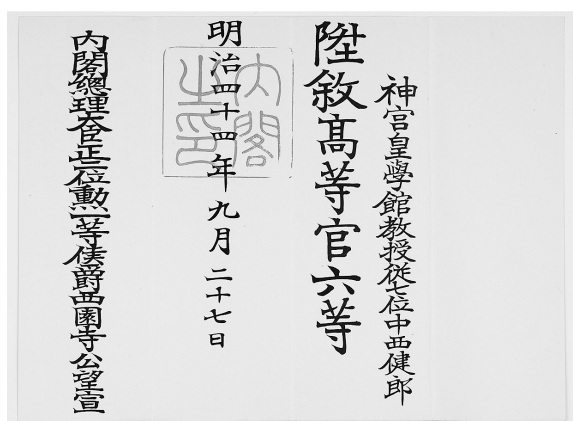 神宮皇學館教授從七位中西健郎
陞敘高等官六等
明治四十四年九月二十七日
內閣之印
內閣總理大臣正二位勳一等侯爵西園寺公望宣